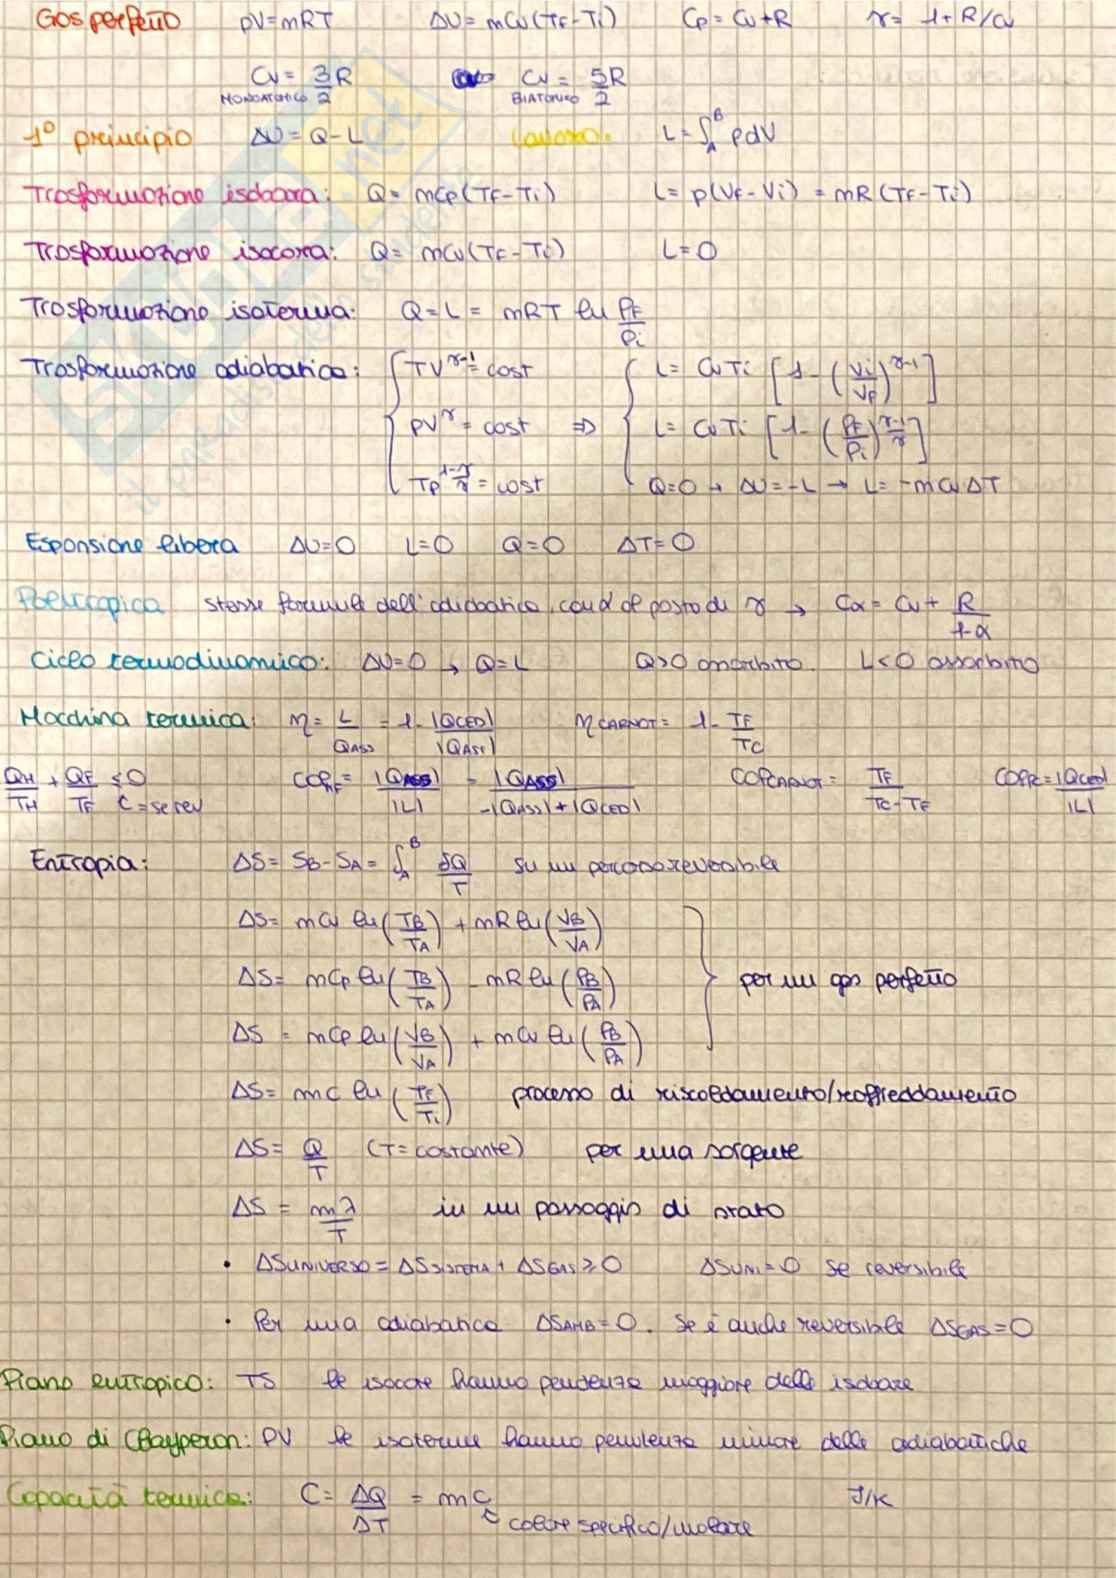 Gas perfetto pV=mRT ΔU=mCv(TF-Ti) Cp=Cv+R γ=1+R/Cv
Cv=3/2 R MONOATOMICO Cv=5/2 R BIATOMICO
1° principio ΔU=Q-L Lavoro: L=∫_A^B pdV
Trasformazione isobara: Q=mCp(TF-Ti) L=p(VF-Vi)=mR(TF-Ti)
Trasformazione isocora: Q=mCv(TF-Ti) L=0
Trasformazione isoterma: Q=L=mRT ln PF/Pi
Trasformazione adiabatica: TV^(γ-1)=cost L=CvTi[1-(Vi/VF)^(γ-1)]
pV^γ=cost ⇒ L=CvTi[1-(PF/Pi)^((γ-1)/γ)]
Tp^((1-γ)/γ)=cost Q=0→ΔU=-L→L=-mCvΔT
Espansione libera ΔU=0 L=0 Q=0 ΔT=0
Politropica stesse formule dell'adiabatica, con α al posto di γ → Cα=Cv+R/(1-α)
Ciclo termodinamico: ΔU=0→Q=L Q>0 assorbito. L<0 assorbito
Macchina termica: η=L/QASS=1-|QCED|/|QASS| ηCARNOT=1-TF/TC
QH/TH+QF/TF≤0 (=se rev COPF=|QASS|/|L|=|QASS|/(-|QASS|+|QCED|) COPCARNOT=TF/(TC-TF) COPPC=|QCED|/|L|
Entropia: ΔS=SB-SA=∫_A^B δQ/T su un percorso reversibile
ΔS=mCv ln(TB/TA)+mR ln(VB/VA)
ΔS=mCp ln(TB/TA)-mR ln(PB/PA) per un gas perfetto
ΔS=mCp ln(VB/VA)+mCv ln(PB/PA)
ΔS=mc ln(TF/Ti) processo di riscaldamento/raffreddamento
ΔS=Q/T (T=costante) per una sorgente
ΔS=mλ/T in un passaggio di stato
• ΔSUNIVERSO=ΔSSISTEMA+ΔSGAS≥0 ΔSUNI=0 se reversibile
• Per una adiabatica ΔSAMB=0. Se è anche reversibile ΔSGAS=0
Piano entropico: TS le isocore hanno pendenza maggiore delle isobare
Piano di Clayperon: PV le isoterme hanno pendenza minore delle adiabatiche
Capacità termica: C=ΔQ/ΔT=mc J/K
calore specifico/molare